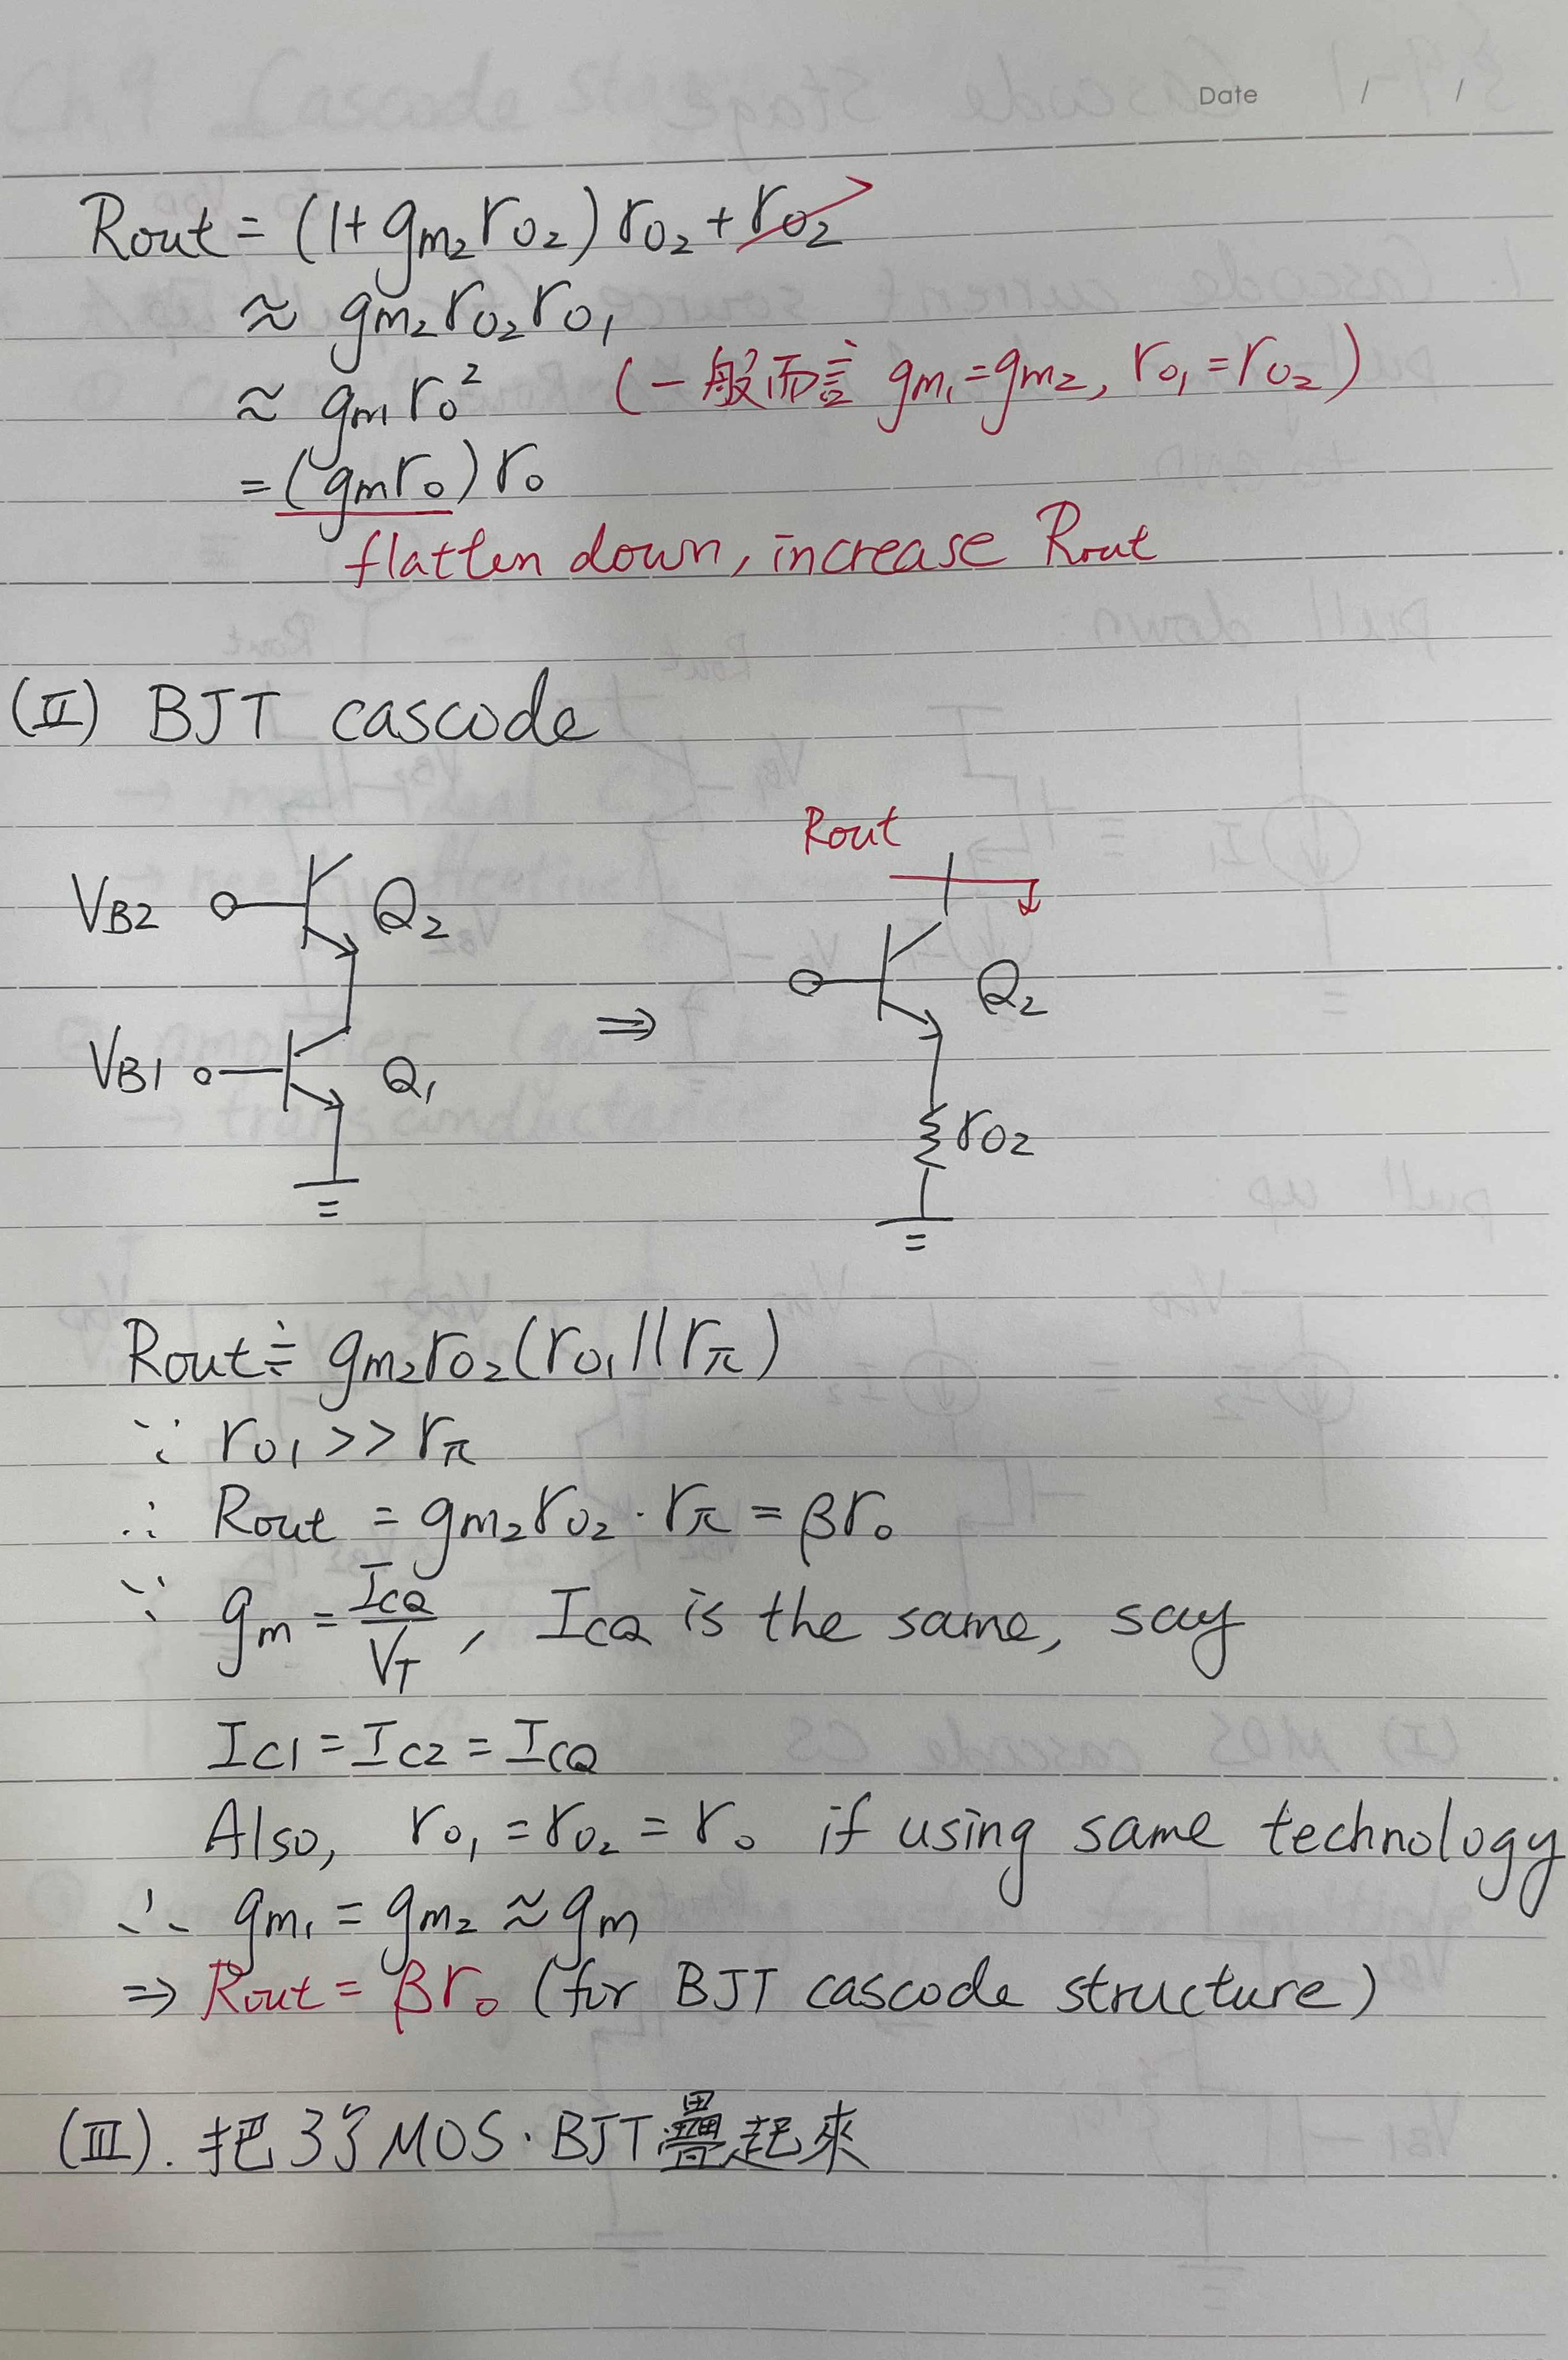 Date / /
Rout = (1+gm₂ro₂)ro₂+ro₂
≈ gm₂ro₂ro₁
≈ gmro² (一般而言 gm₁=gm₂, ro₁=ro₂)
=(gmro)ro
flatten down, increase Rout
(II) BJT cascode
Rout
VB2 Q₂
Q₂
VB1 Q₁
ro₂
Rout≒ gm₂ro₂(ro₁||rπ)
∵ ro₁>>rπ
∴ Rout = gm₂ro₂·rπ = βro
∵ gm = ICQ/VT, ICQ is the same, say
IC1=IC2=ICQ
Also, ro₁=ro₂=ro if using same technology
∴ gm₁ = gm₂ ≈ gm
⇒ Rout = βro (for BJT cascode structure)
(III). 把3个MOS·BJT疊起來